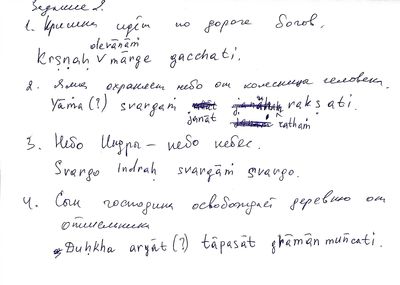 Задание 2.
1. Кришна идёт по дороге богов.
devānāṁ
Kṛṣṇaḥ V mārge gacchati.
2. Яма охраняет небо от колесницы человека.
Yama (?) svargaṁ rakṣati.
janāt ratham
3. Небо Индры – небо небес.
Svargo Indraḥ svargāṁ svargo.
4. Сын господина освобождает деревню от
отшельника
Duḥkha aryāt (?) tāpasāt grāmān muñcati.